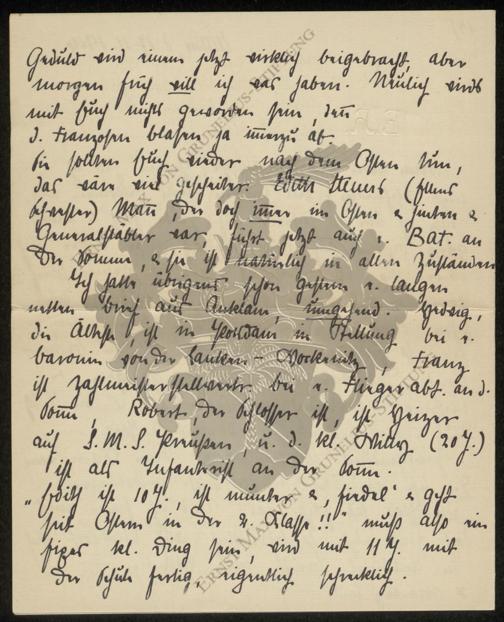 Geduld wird einem jetzt wirklich beigebracht, aber
morgen früh will ich was haben. Neulich wirds
mit Euch nichts geworden sein, denn
d. Franzosen blasen ja immerzu ab.
Sie sollten Euch wieder nach dem Osten tun,
das wäre viel gescheiter. Edith
Schwester) Mann, der doch immer im Osten & hinten &
Generalstäbler war, führt jetzt auch e. Bat. an
der Somme, & sie ist natürlich in allen Zuständen
Ich hatte übrigens schon gestern e. langen
netten Brief aus Anklam, umgehend. Hedwig,
die Älteste, ist in Potsdam in Stellung bei e.
Baronin von der Lanken-Wockenitz, Franz
ist Zahlmeisterstellvertr. bei e. Fliegerabt. an d.
Somme, Robert der Schlosser ist, ist Heizer
auf S.M.S. Preußen, u. d. kl. Willy (20 J.)
ist als Infanterist an der Somme.
"Edith ist 10 J., ist munter & "fiedel" & geht
seit Ostern in der 2. Klasse!! muß also ein
fixes kl. Ding sein, wird mit 11 J. mit
der Schule fertig, eigentlich schrecklich.
ERNST MAX VON GRUNELIUS-STIFTUNG
ERNST MAX VON GRUNELIUS-STIFTUNG